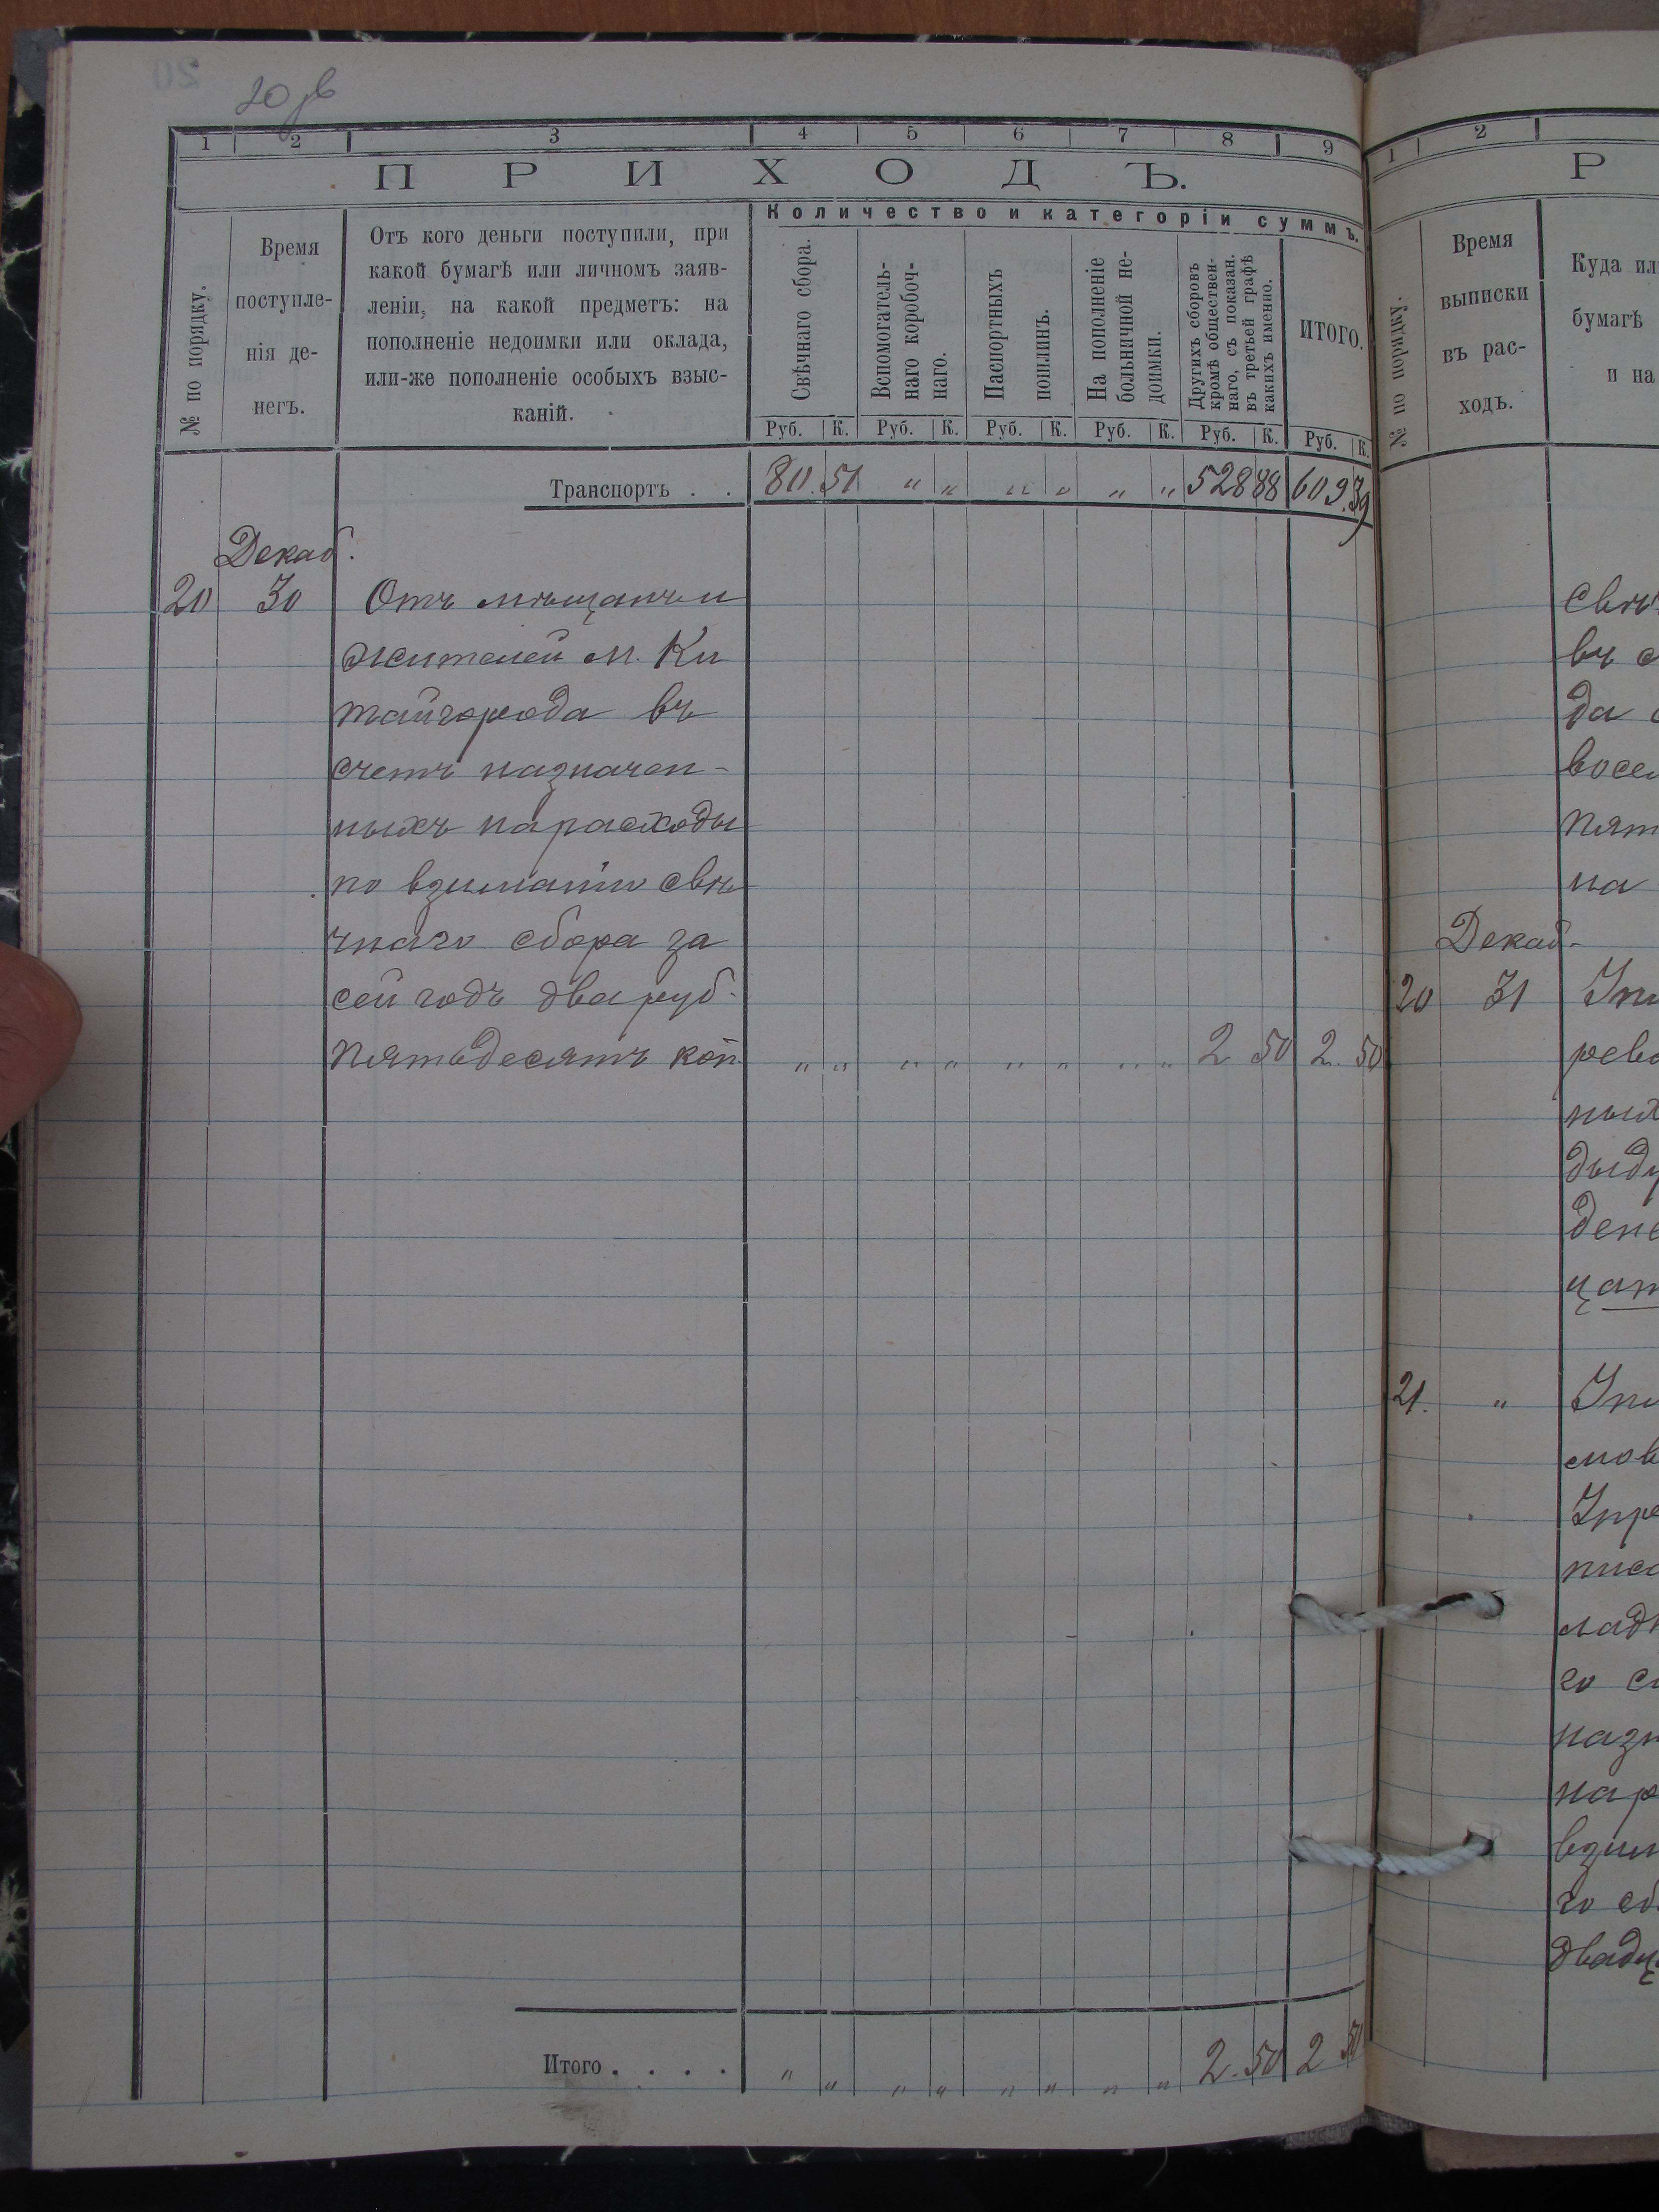 20 об
1 2 3 4 5 6 7 8 9
ПРИХОДЪ.
Количество и категоріи суммъ.
№ по порядку.
Время
поступле-
нія де-
негъ.
Отъ кого деньги поступили, при
какой бумагѣ или личномъ заяв-
леніи, на какой предметъ: на
пополненіе недоимки или оклада,
или-же пополненіе особыхъ взыс-
каній.
Свѣчнаго сбора.
Вспомогатель-
наго коробоч-
наго.
Паспортныхъ
пошлинъ.
На пополненіе
больничной не-
доимки.
Другихъ сборовъ
кромѣ обществен-
наго, съ показан.
въ третьей графѣ
какихъ именно.
ИТОГО.
Руб. К. Руб. К. Руб. К. Руб. К. Руб. К. Руб. К.
Транспортъ . . 80. 51 " " " " " " 528 88 609. 39
Декаб.
20 30 Отъ мѣщанъ и
жителей м. Ки
тайгорода въ
счетъ назначен-
ныхъ на расходы
по взиманію свѣ
чнаго сбора за
сей годъ два руб.
пятьдесятъ коп. " " " " " " " " 2 50 2. 50
Итого . . . . " " " " " " " " 2. 50 2 50
1 2
Р
№ по порядку.
Время
выписки
въ рас-
ходъ.
Куда ил
бумагѣ
и на
свѣч
въ с
да с
восем
пят
на
Декаб.
20 31
рево
ных
дыду
дене
цат
21. "
смов
писа
ладн
го с
назн
нар
взим
го сб
двадц